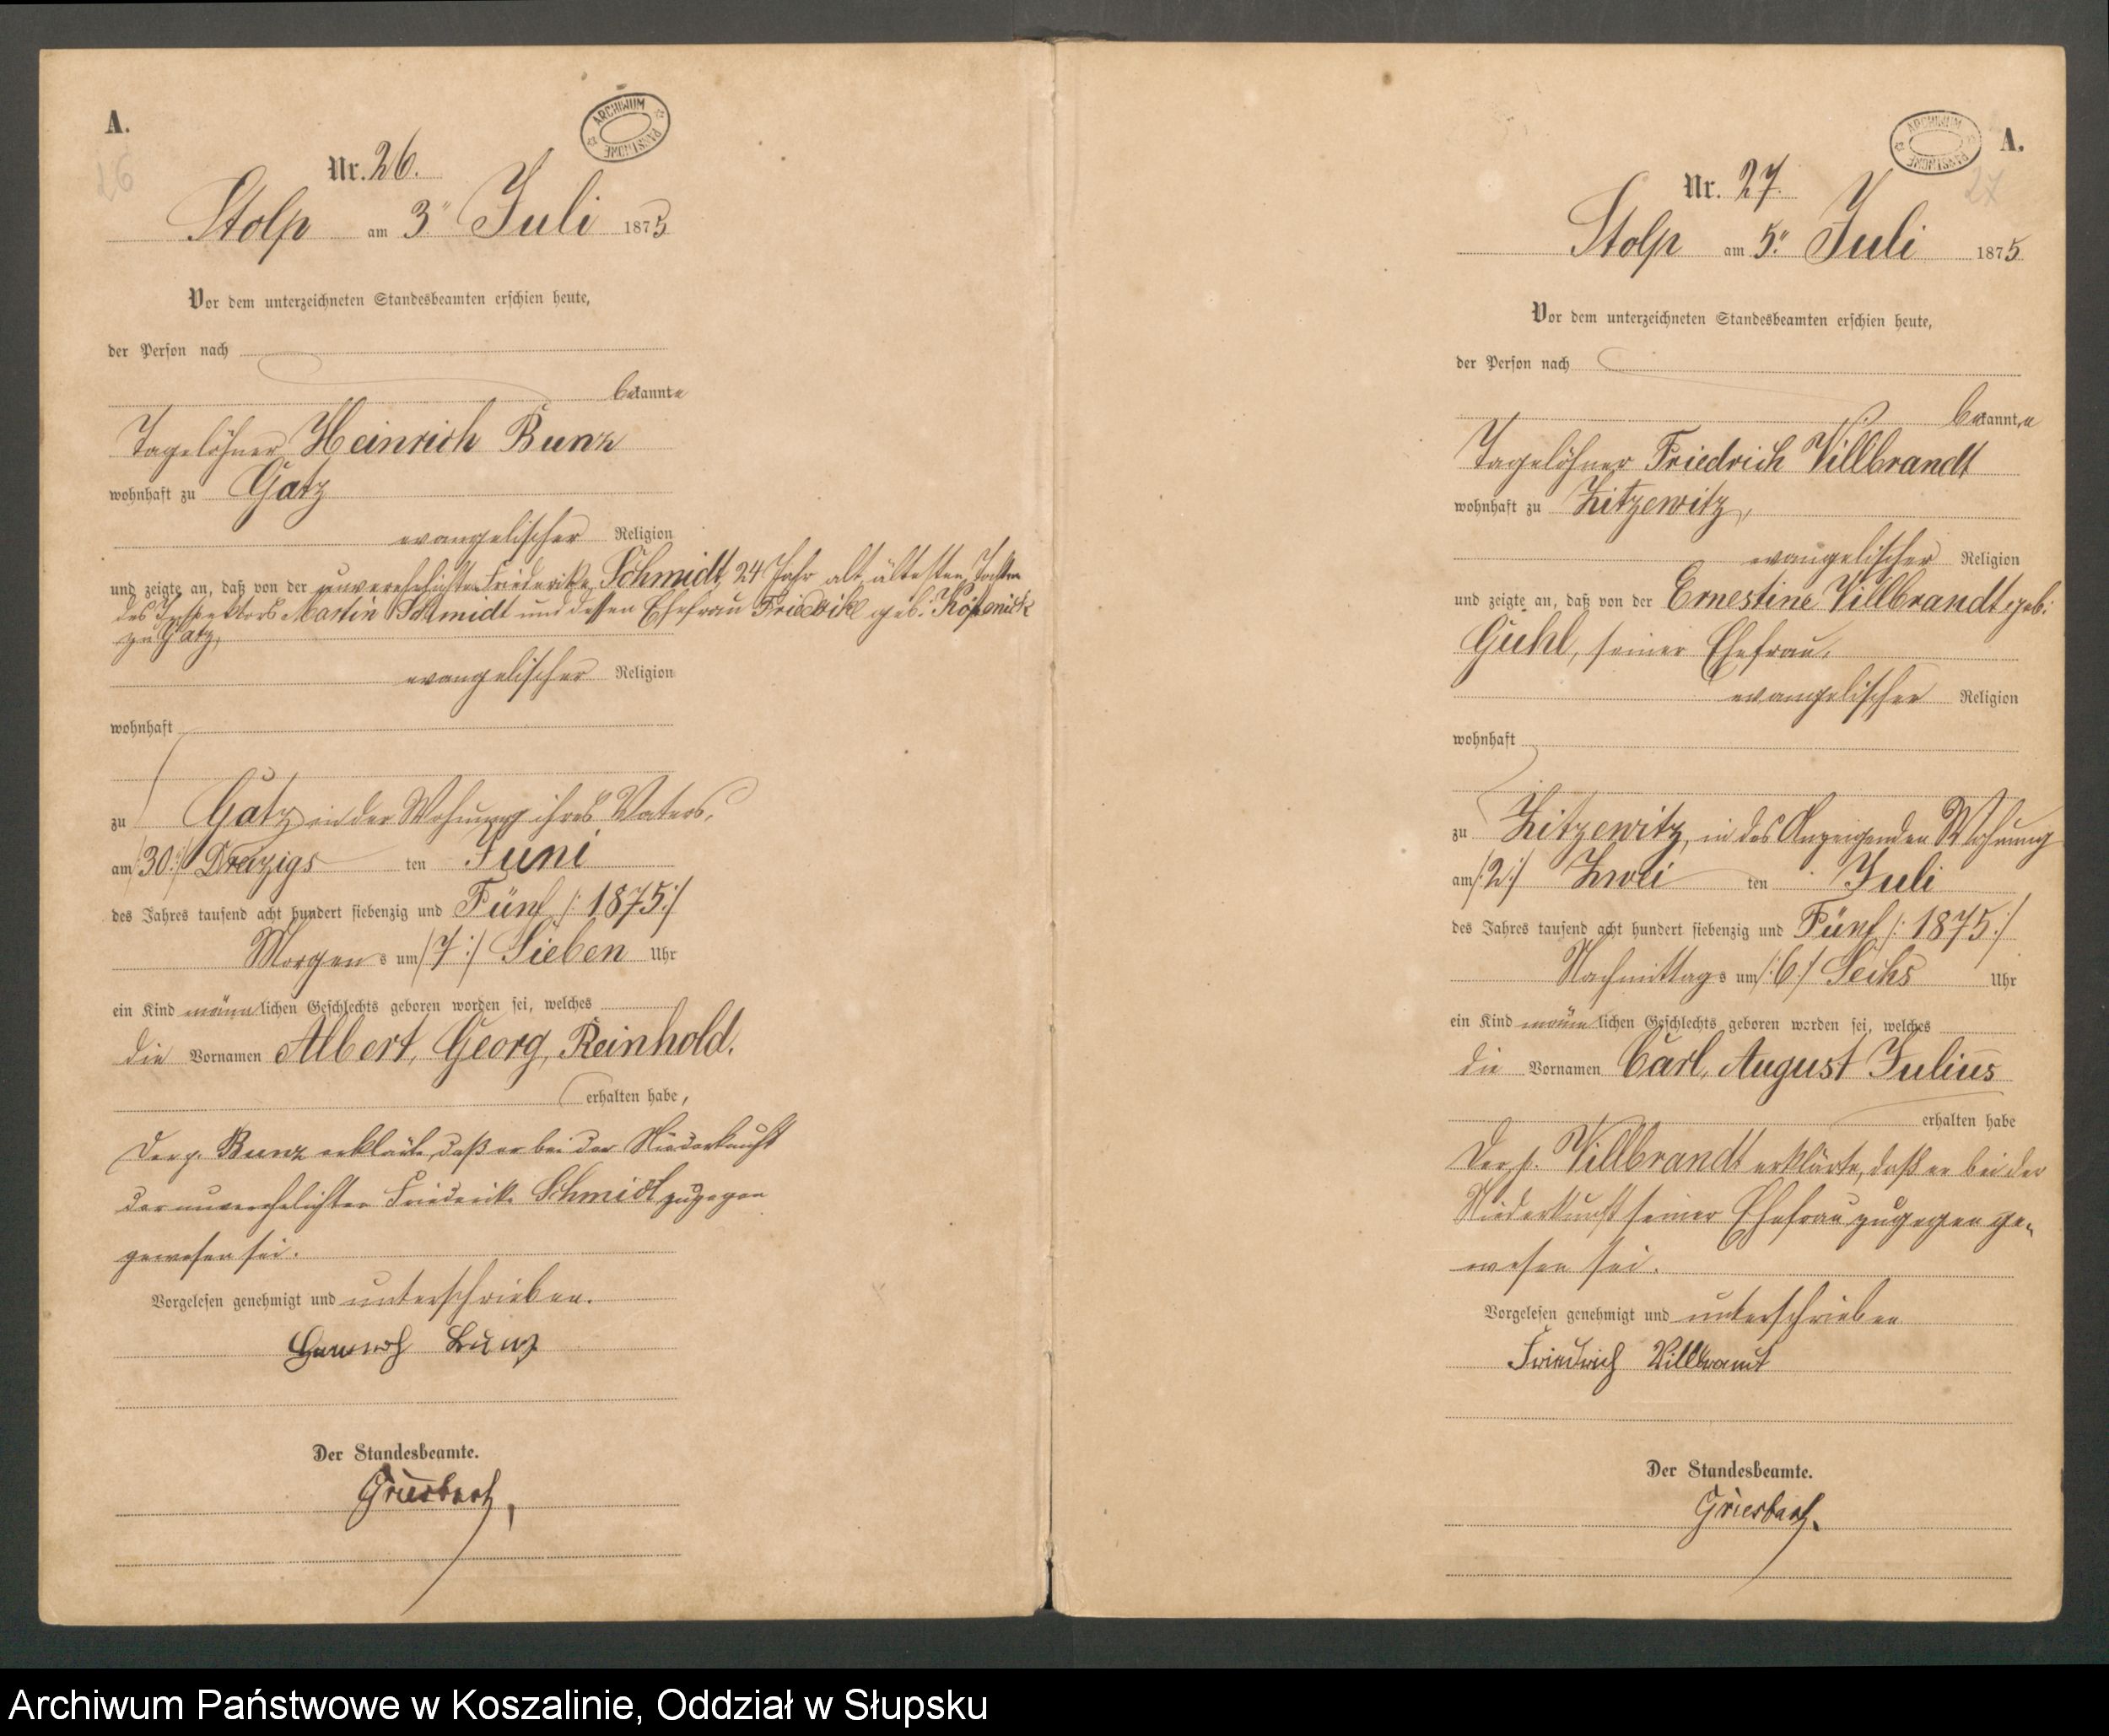 A.
26
ARCHIWUM PAŃSTWOWE
Nr. 26.
Stolp am 3" Juli 1875
Vor dem unterzeichneten Standesbeamten erschien heute,
der Person nach
bekannte
Tagelöhner Heinrich Bunz
wohnhaft zu Gatz
evangelischer Religion
und zeigte an, daß von der unverehelichten Friederike Schmidt, 24 Jahr alt, ältesten Tochter
des Inspektors Martin Schmidt und dessen Ehefrau Friedrike geb: Köpenick
zu Gatz,
evangelischer Religion
wohnhaft
zu Gatz in der Wohnung ihres Vaters,
am /:30:/ Dreizigs ten Juni
des Jahres tausend acht hundert siebenzig und Fünf /: 1875:/
Morgens um /:7:/ Sieben Uhr
ein Kind männlichen Geschlechts geboren worden sei, welches
die Vornamen Albert, Georg, Reinhold.
erhalten habe,
Der p. Bunz erklärte, daß er bei der Niederkunft
der unverehelichten Friederike Schmidt zugegen
gewesen sei.
Vorgelesen genehmigt und unterschrieben.
Heinrich Bunz
Der Standesbeamte.
Griesbach,
ARCHIWUM PAŃSTWOWE
A.
27
Nr. 27.
Stolp am 5." Juli 1875
Vor dem unterzeichneten Standesbeamten erschien heute,
der Person nach
bekannte
Tagelöhner Friedrich Villbrandt
wohnhaft zu Zitzewitz,
evangelischer Religion
und zeigte an, daß von der Ernestine Villbrandt geb:
Guhl, seiner Ehefrau,
evangelischer Religion
wohnhaft
zu Zitzewitz, in des Anzeigenden Wohnung
am /:2:/ Zwei ten Juli
des Jahres tausend acht hundert siebenzig und Fünf /: 1875:/
Nachmittags um /:6:/ Sechs Uhr
ein Kind männlichen Geschlechts geboren worden sei, welches
die Vornamen Carl, August Julius
erhalten habe
Der p. Villbrandt erklärte, daß er bei der
Niederkunft seiner Ehefrau zugegen ge-
wesen sei.
Vorgelesen genehmigt und unterschrieben
Friedrich Villbrandt
Der Standesbeamte.
Griesbach.
Archiwum Państwowe w Koszalinie, Oddział w Słupsku